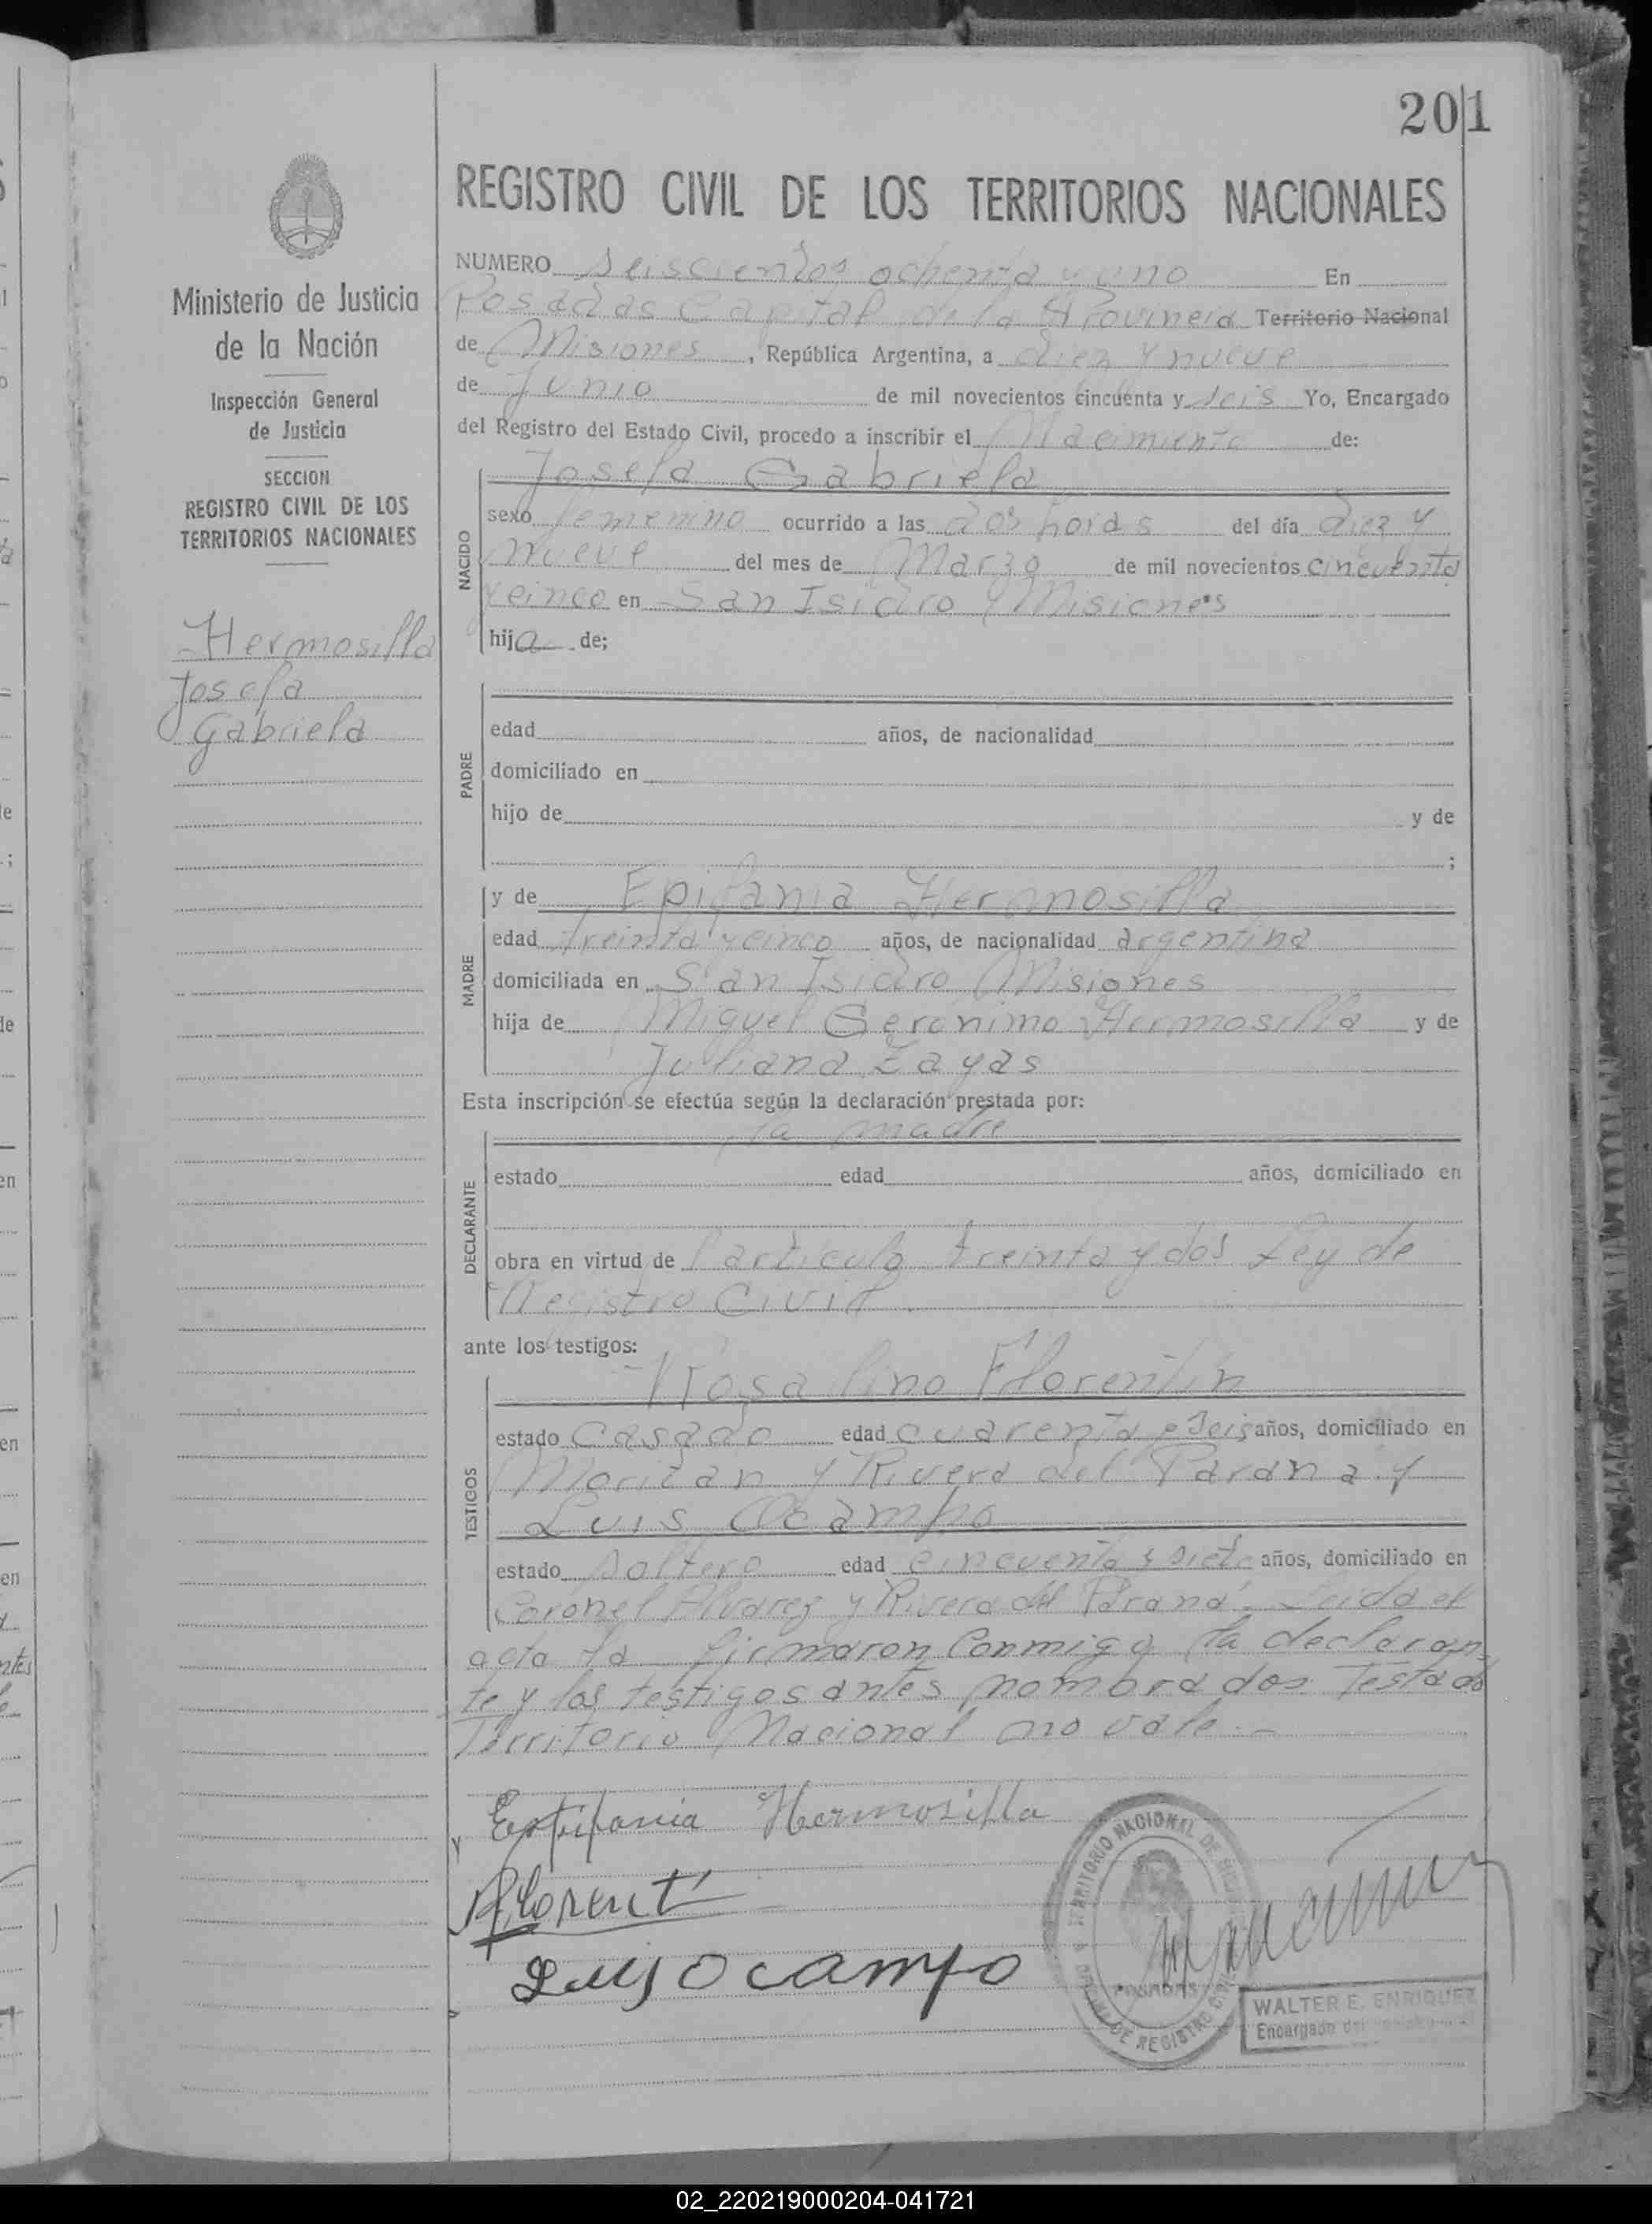 201
REGISTRO CIVIL DE LOS TERRITORIOS NACIONALES
Ministerio de Justicia
de la Nación
Inspección General
de Justicia
SECCION
REGISTRO CIVIL DE LOS
TERRITORIOS NACIONALES
Hermosilla
Josefa
Gabriela
NUMERO Seiscientos ochenta y uno En
Posadas Capital de la Provincia Territorio Nacional
de Misiones, República Argentina, a diez y nueve
de Junio de mil novecientos cincuenta y seis Yo, Encargado
del Registro del Estado Civil, procedo a inscribir el Nacimiento de:
Josefa Gabriela
NACIDO
sexo femenino ocurrido a las dos horas del día diez y
nueve del mes de Marzo de mil novecientos cincuenta
y cinco en San Isidro Misiones
hija de;
PADRE
edad años, de nacionalidad
domiciliado en
hijo de y de
;
MADRE
y de Epifania Hermosilla
edad treinta y cinco años, de nacionalidad argentina
domiciliada en San Isidro Misiones
hija de Miguel Geronimo Hermosilla y de
Juliana Zayas
Esta inscripción se efectúa según la declaración prestada por:
la madre
DECLARANTE
estado edad años, domiciliado en
obra en virtud de articulo treinta y dos Ley de
Registro Civil
ante los testigos:
Rosalino Florentin
TESTIGOS
estado Casado edad cuarenta y seis años, domiciliado en
y Rivera del Parana y
Luis Ocampo
estado Soltero edad cincuenta y siete años, domiciliado en
Coronel Alvarez y Rivera del Paraná. Leida el
acta la firmaron conmigo la declaran-
te y los testigos antes nombrados Testado
Territorio Nacional no vale.-
Epifania Hermosilla
Florent
Luis Ocampo
TERRITORIO NACIONAL DE
POSADAS
DE REGISTRO
WALTER E. ENRIQUEZ
Encargado del
02_220219000204-041721